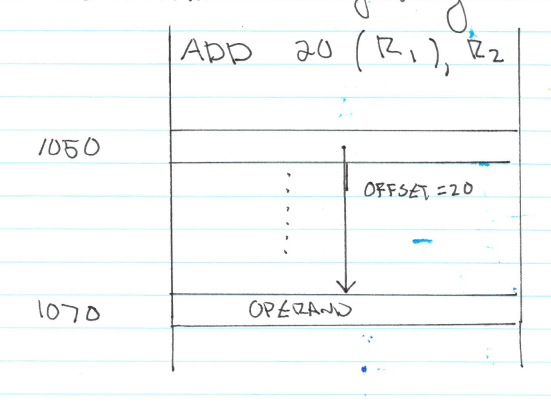 ADD 20 (R1), R2
1050
OFFSET = 20
1070
OPERAND